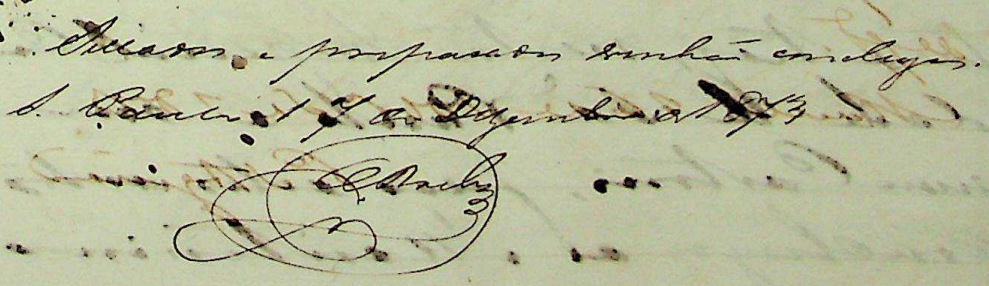 Sellados e preparados venhão conclusos.
S. Paulo, 17 de Dezembro de 1873